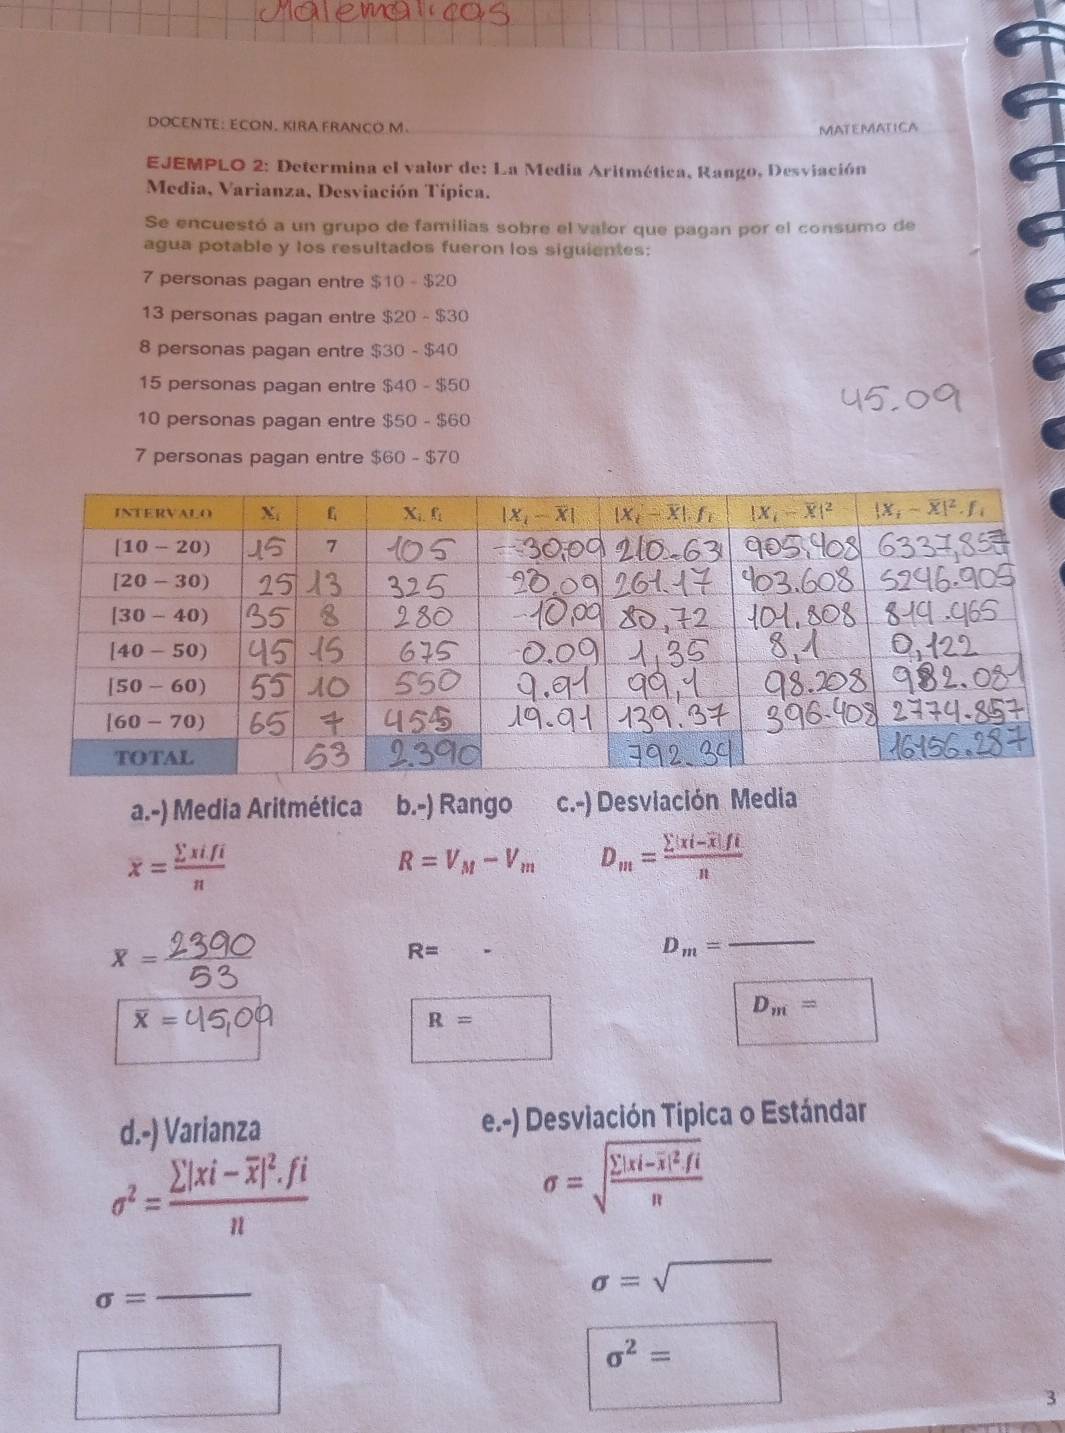 Matematicas
DOCENTE: ECON. KIRA FRANCO M.
MATEMATICA
EJEMPLO 2: Determina el valor de: La Media Aritmética, Rango, Desviación
Media, Varianza, Desviación Típica.
Se encuestó a un grupo de familias sobre el valor que pagan por el consumo de
agua potable y los resultados fueron los siguientes:
7 personas pagan entre $10 - $20
13 personas pagan entre $20 - $30
8 personas pagan entre $30 - $40
15 personas pagan entre $40 - $50
45.09
10 personas pagan entre $50 - $60
7 personas pagan entre $60 - $70
INTERVALO Xᵢ fᵢ Xᵢ. fᵢ |Xᵢ − X̅| |Xᵢ − X̅|. fᵢ |Xᵢ − X̅|² |Xᵢ − X̅|². fᵢ
[10 − 20) 15 7 105 -30,09 210.63 905,408 6337,857
[20 − 30) 25 13 325 20.09 261.17 403.608 5246.905
[30 − 40) 35 8 280 -10,09 80,72 101,808 814.465
[40 − 50) 45 15 675 0.09 1,35 8,1 0,122
[50 − 60) 55 10 550 9.91 99,1 98.208 982.081
[60 − 70) 65 7 455 19.91 139.37 396.408 2774.857
TOTAL 53 2.390 792.34 16156.287
a.-) Media Aritmética b.-) Rango c.-) Desviación Media
x̅ = Σxi.fi / n R = V_M − V_m D_m = Σ|xi−x̅|.fi / n
x̅ = 2390 / 53 R= - D_m =
x̅ = 45,09 R = D_m =
d.-) Varianza e.-) Desviación Típica o Estándar
σ² = Σ|xi − x̅|². fi / n σ = √(Σ|xi−x̅|².fi / n)
σ = σ = √
σ² =
3